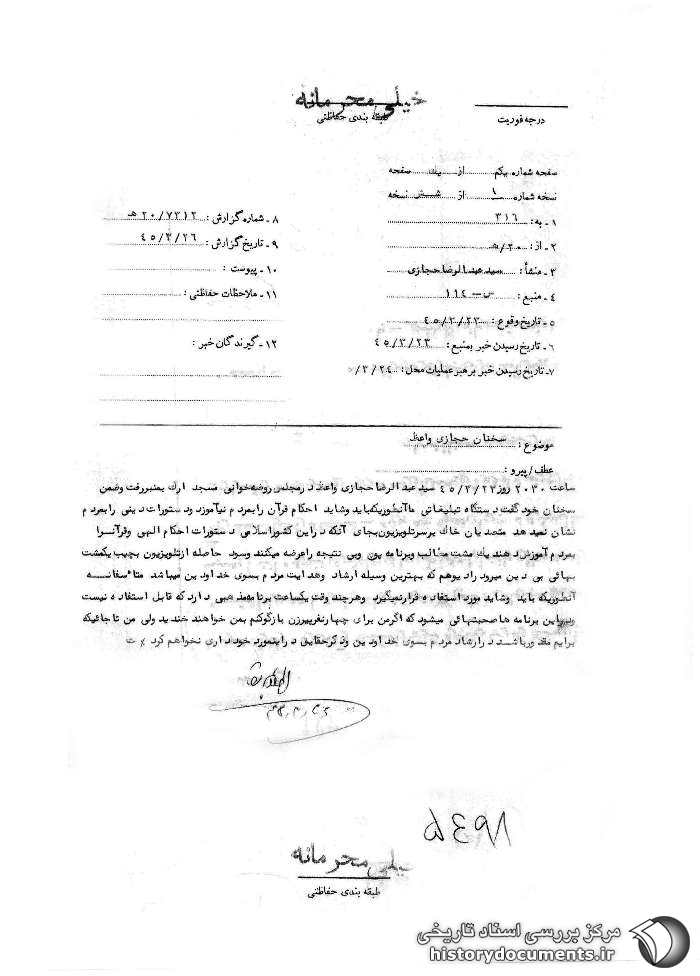 خیلی محرمانه
طبقه بندی حفاظتی
درجه فوریت
صفحه شماره یکم از یک صفحه
نسخه شماره ۱ از شش نسخه
۱ـ به: ۳۱۶
۲ـ از: ۲۰/ه
۳ـ منشأ: سید عبدالرضا حجازی
۴ـ منبع: س – ۱۱۴
۵ـ تاریخ وقوع: ۴۵/۳/۲۳
۶ـ تاریخ رسیدن خبر بمنبع: ۴۵/۳/۲۳
۷ـ تاریخ رسیدن خبر برهبر عملیات محل: ۴۵/۳/۲۴
۸ـ شماره گزارش: ۲۰/۷۳۱۲ هـ
۹ـ تاریخ گزارش: ۴۵/۳/۲۶
۱۰ـ پیوست:
۱۱ـ ملاحظات حفاظتی:
۱۲ـ گیرندگان خبر:
موضوع: سخنان حجازی واعظ
عطف/پیرو:
ساعت ۲۰۳۰ روز ۴۵/۳/۲۳ سید عبدالرضا حجازی واعظ در مجلس روضه خوانی مسجد ارک بمنبر رفت وضمن
سخنان خود گفت دستگاه تبلیغاتی ما آنطوریکه باید وشاید احکام قرآن را بمردم نیآموزد ودستورات دینی را بمردم
نشان نمیدهد متصدیان خاک برسر تلویزیون بجای آنکه در این کشور اسلامی دستورات احکام الهی وقرآنرا
بمردم آموزش دهند یک مشت مطالب وبرنامه پوچ وبی نتیجه را عرضه میکنند وسود حاصله از تلویزیون بجیب یکمشت
بهائی بی دین میرود رادیو هم که بهترین وسیله ارشاد وهدایت مردم بسوی خدا ودین میباشد متأسفانه
آنطوریکه باید وشاید مورد استفاده قرار نمیگیرد وهر چند وقت یکساعت برنامه مذهبی دارد که قابل استفاده نیست
ودر این برنامه ها صحبتهائی میشود که اگر من برای چهار نفر پیرزن بازگو کنم بمن خواهند خندید ولی من تا جائیکه
برایم مقدور باشد در ارشاد مردم بسوی خدا ودین وذکر حقایق در اینمورد خودداری نخواهم کرد
۵۴۹۸
خیلی محرمانه
طبقه بندی حفاظتی
مرکز بررسی اسناد تاریخی
historydocuments.ir